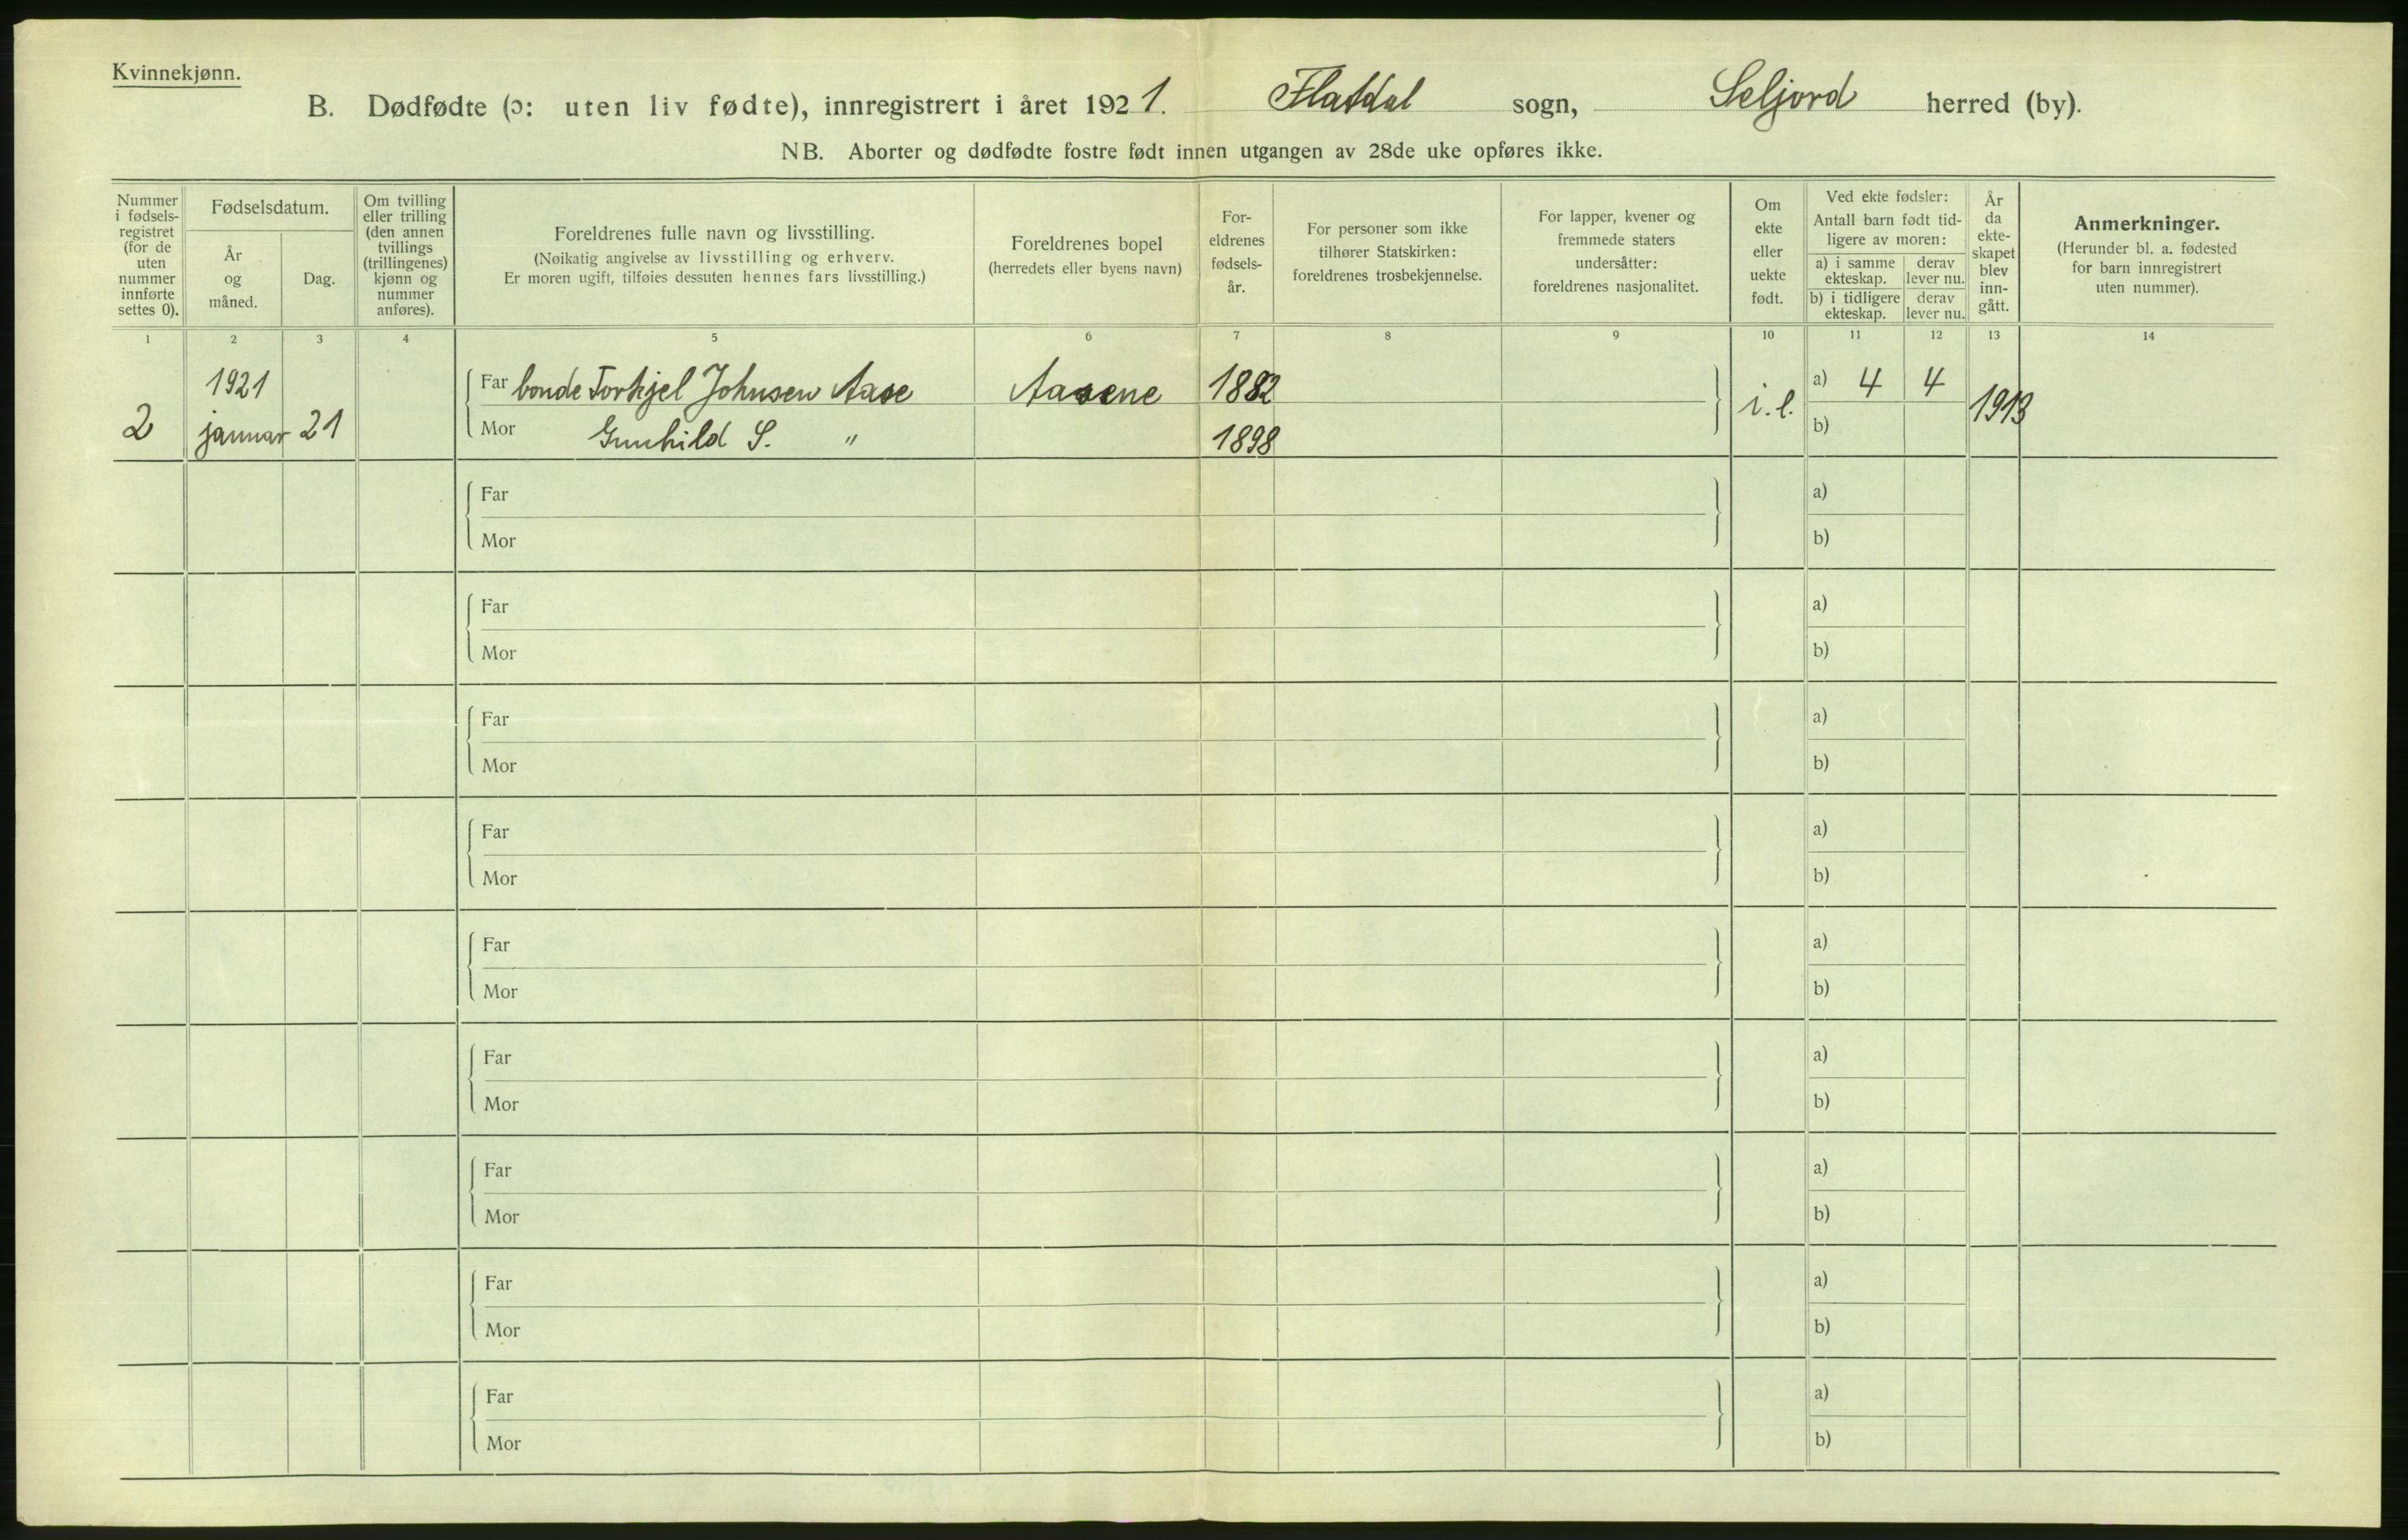 Kvinnekjønn.
B. Dødfødte (ɔ: uten liv fødte), innregistrert i året 1921. Flatdal sogn, Seljord herred (by).
NB. Aborter og dødfødte fostre født innen utgangen av 28de uke opføres ikke.
Nummer
i fødsels-
registret
(for de
uten
nummer
innførte
settes 0).
Fødselsdatum.
År
og
måned.
Dag.
Om tvilling
eller trilling
(den annen
tvillings
(trillingenes)
kjønn og
nummer
anføres).
Foreldrenes fulle navn og livsstilling.
(Nøikatig angivelse av livsstilling og erhverv.
Er moren ugift, tilføies dessuten hennes fars livsstilling.)
Foreldrenes bopel
(herredets eller byens navn)
For-
eldrenes
fødsels-
år.
For personer som ikke
tilhører Statskirken:
foreldrenes trosbekjennelse.
For lapper, kvener og
fremmede staters
undersåtter:
foreldrenes nasjonalitet.
Om
ekte
eller
uekte
født.
Ved ekte fødsler:
Antall barn født tid-
ligere av moren:
a) i samme
ekteskap.
derav
lever nu.
b) i tidligere
ekteskap.
derav
lever nu.
År
da
ekte-
skapet
blev
inn-
gått.
Anmerkninger.
(Herunder bl. a. fødested
for barn innregistrert
uten nummer).
1 2 3 4 5 6 7 8 9 10 11 12 13 14
1921 Far bonde Torkjel Johnsen Aase Aasene 1882 a) 4 4
2 januar 21 Mor Gunhild S. " 1898 i.l. b) 1913
Far a)
Mor b)
Far a)
Mor b)
Far a)
Mor b)
Far a)
Mor b)
Far a)
Mor b)
Far a)
Mor b)
Far a)
Mor b)
Far a)
Mor b)
Far a)
Mor b)